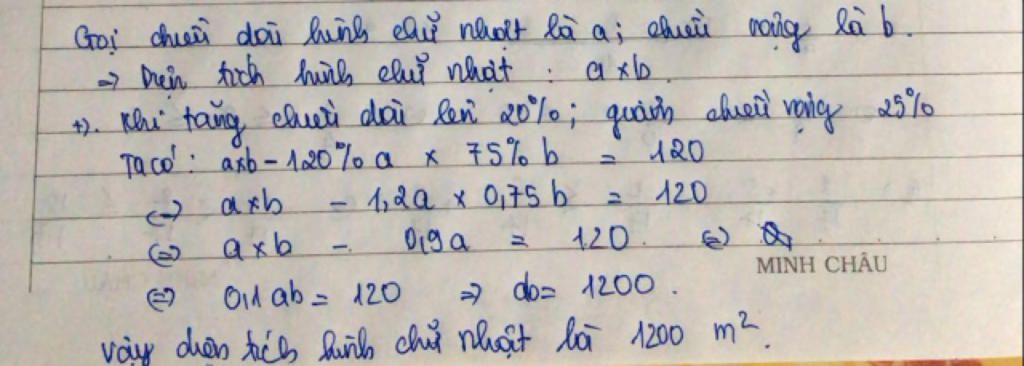 Gọi chiều dài hình chữ nhật là a; chiều rộng là b.
→ Diện tích hình chữ nhật : a x b
+). Khi tăng chiều dài lên 20%; giảm chiều rộng 25%
Ta có: axb - 120% a x 75% b = 120
<=> a x b - 1,2a x 0,75 b = 120
<=> a x b - 0,9a = 120. <=>
MINH CHÂU
<=> 0,1 ab = 120 => ab = 1200.
Vậy diện tích hình chữ nhật là 1200 m².